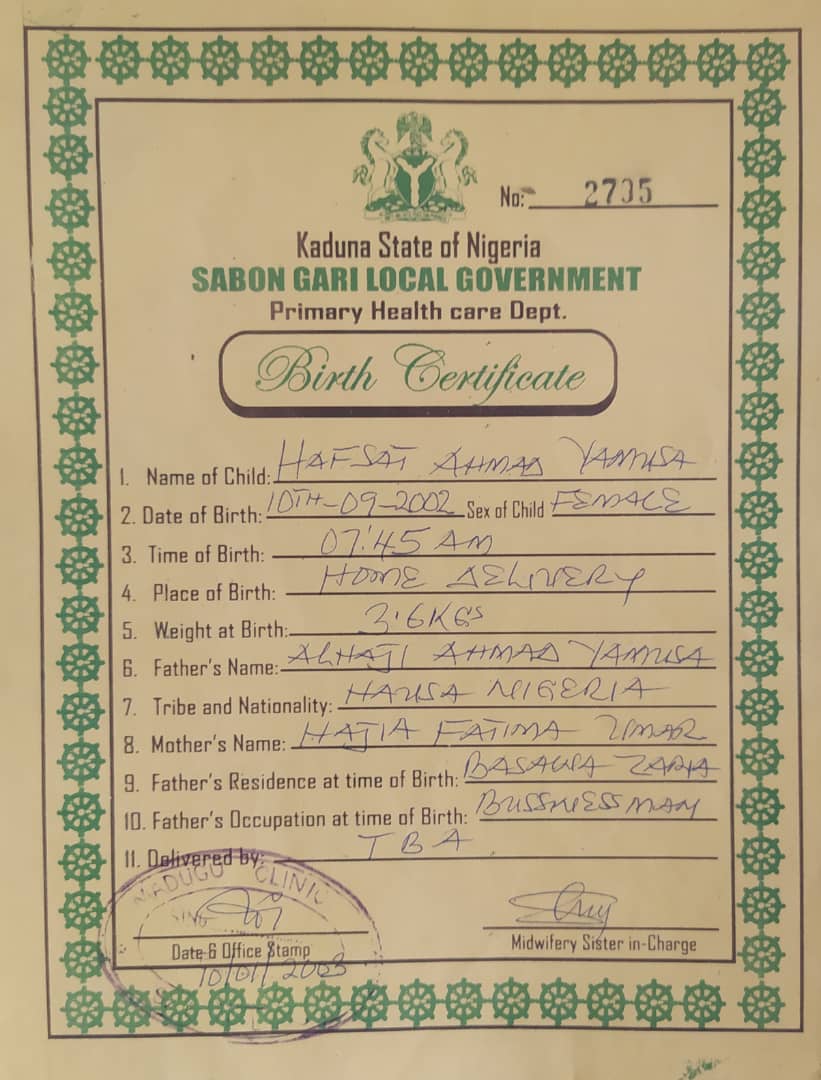 No: 2795
Kaduna State of Nigeria
SABON GARI LOCAL GOVERNMENT
Primary Health care Dept.
Birth Certificate
1. Name of Child: HAFSAT AHMAD YAMUSA
2. Date of Birth: 10TH-09-2002 Sex of Child FEMALE
3. Time of Birth: 07:45 AM
4. Place of Birth: HOME DELIVERY
5. Weight at Birth: 3.6KGS
6. Father's Name: ALHAJI AHMAD YAMUSA
7. Tribe and Nationality: HAUSA NIGERIA
8. Mother's Name: HAJIA FATIMA UMAR
9. Father's Residence at time of Birth: BASAWA ZARIA
10. Father's Occupation at time of Birth: BUSSNESSMAN
11. Delivered by: TBA
MADUGU CLINIC
Date & Office Stamp
Midwifery Sister in-Charge
10/01/2003